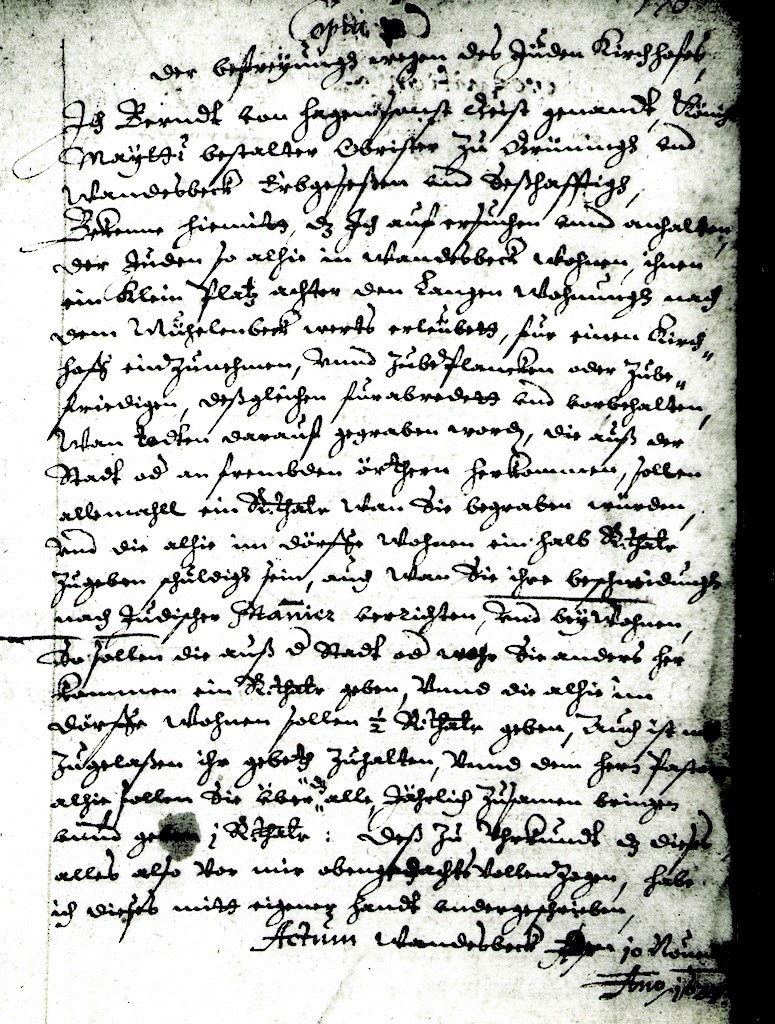 Copia
der befreyungh wegen des Juden Kirchhofes,
Ich Berndt von Hagen sonst Geist genandt, König
Maytts bestalter Obrister zu Grüningh vnd
Wandesbeck Erbgeseßen vnd Seßhafftigh,
Bekenne hiemitt, dz Ich auf ersuchen vnnd anhalten,
der Juden so alhie in Wandesbeck wohnen, ihnen
ein klein Platz achter den Langen Wohnungh nach
dem Mühelenbeck werts erleubett, für einen Kirch"
hoff einZunehmen, vnnd Zubeplancken oder Zube"
friedigen, deßgleichen fürabredett vnd vorbehalten,
Wan todten darauf gegraben word, die auß der
Stadt od an frembden örthern herkommen, sollen
allemahll ein Rthalr Wan Sie begraben würden,
vnd die alhie im dörffe wohnen ein halb Rthalr
Zugeben schuldigh sein, auch Wan Sie ihre beschneidungh
nach Judischer Manier verrichten, vnd beyWohnen,
So sollen die auß d Stadt od wohr Sie anders her
kommen ein Rthalr geben, Vnnd die alhie im
dörffe wohnen sollen ½ Rthalr geben, Auch ist
Zugelaßen ihr gebeth Zuhalten, Vnnd dem hern Pastor
alhie sollen Sie über alle, Jährlich Zusamen bringen
vnnd geben j Rthalr : Deß Zu Vhrkundt dz dieses
alles also vor mir obengedacht Vollenzogen, habe
ich dieses mitt eigener handt vndergeschrieben,
Actum Wandesbeck den 10 Nouem
Ano